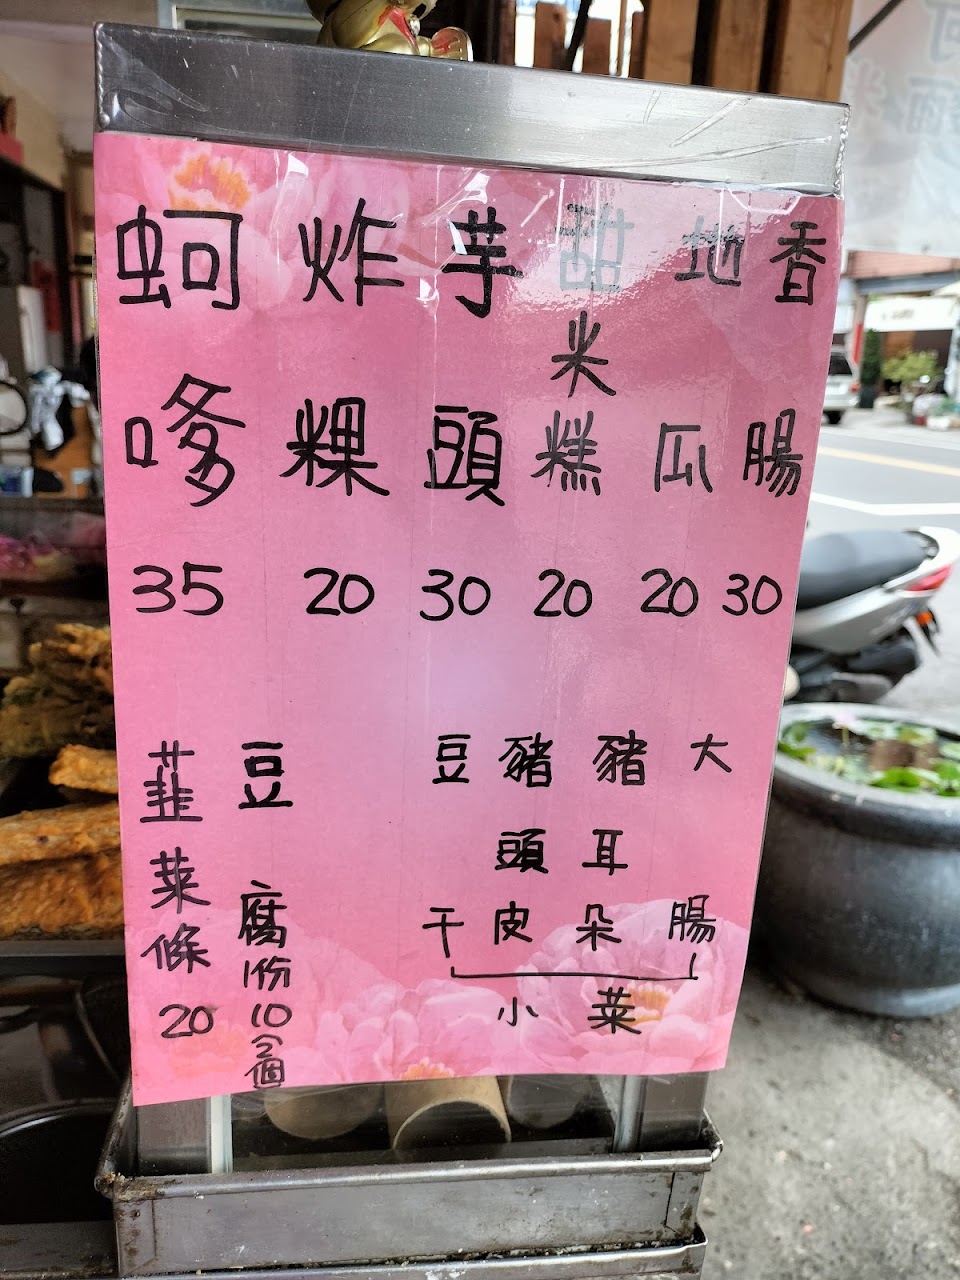 香腸 30
地瓜 20
甜米糕 20
芋頭 30
炸粿 20
蚵嗲 35
大腸
豬耳朵
豬頭皮
豆干
小菜
豆腐1份10(2個
韮菜條 20